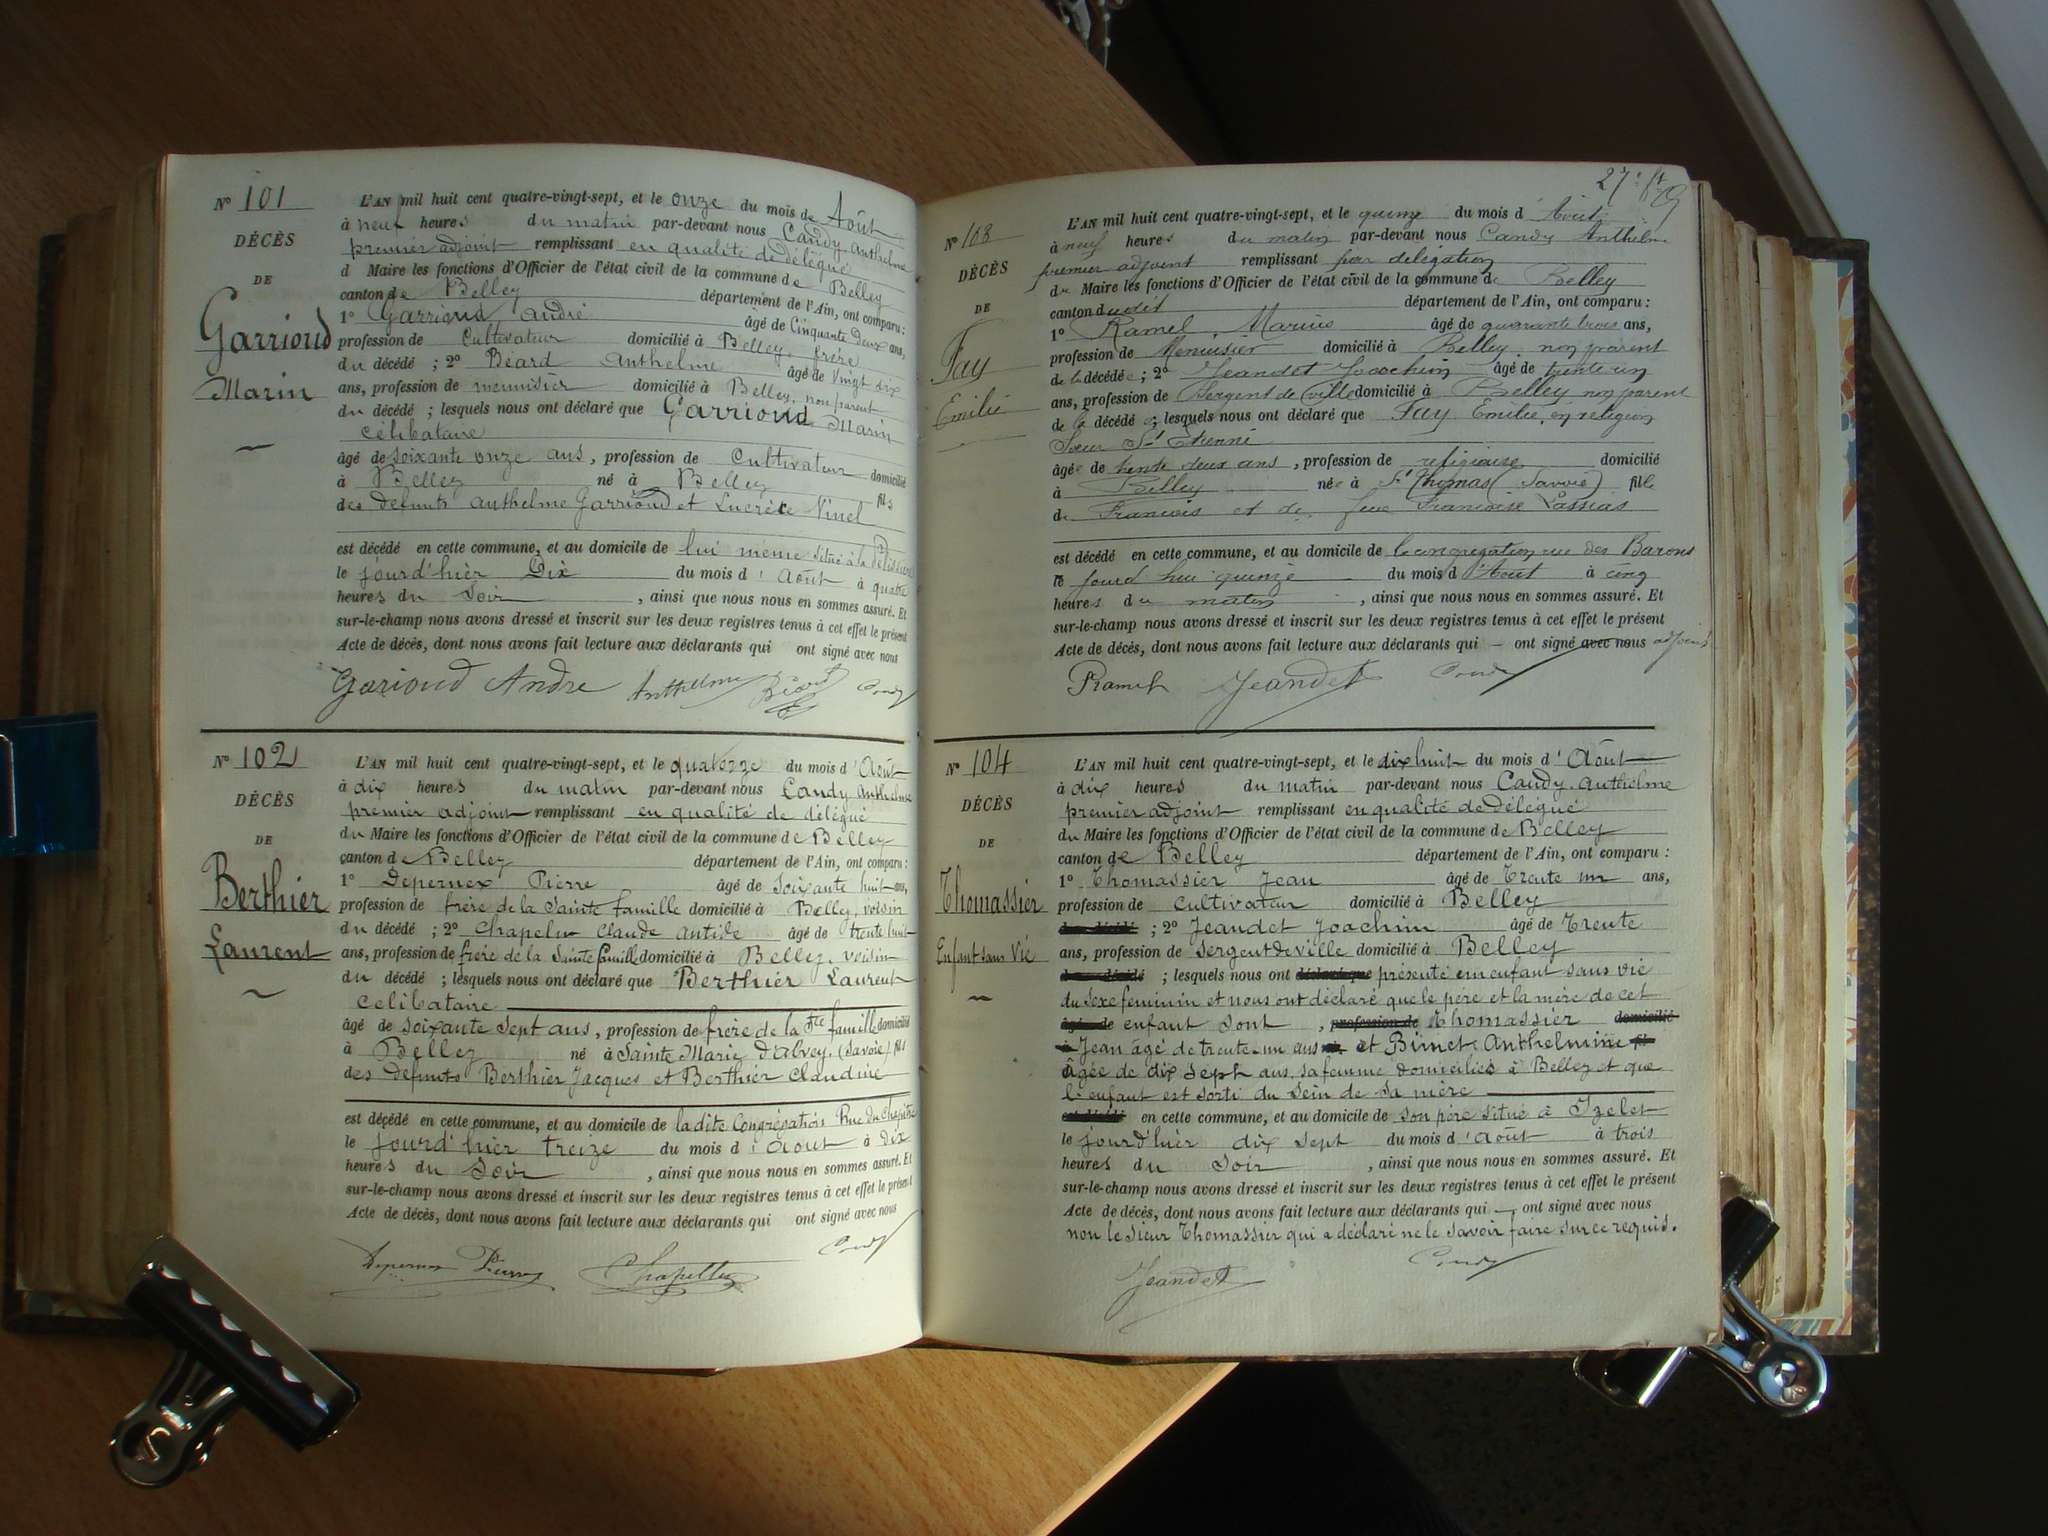 N° 101
DÉCÈS
DE
Garrioud
Marin
L'AN mil huit cent quatre-vingt-sept, et le onze du mois de Août
à neuf heures du matin par-devant nous Candy Anthelme
premier adjoint remplissant en qualité de délégué
d Maire les fonctions d'Officier de l'état civil de la commune de Belley
canton de Belley département de l'Ain, ont comparu :
1° Garrioud André âgé de Cinquante Deux ans,
profession de Cultivateur domicilié à Belley, frère
du décédé ; 2° Béard Anthelme âgé de vingt six
ans, profession de menuisier domicilié à Belley, non parent
du décédé ; lesquels nous ont déclaré que Garrioud Marin
célibataire
âgé de soixante onze ans, profession de Cultivateur domicilié
à Belley né à Belley fils
des défunts Anthelme Garrioud et Lucrèce Vinel
est décédé en cette commune, et au domicile de lui même situé à la
le jourd'hier Dix du mois d'Août à quatre
heures du Soir, ainsi que nous nous en sommes assuré. Et
sur-le-champ nous avons dressé et inscrit sur les deux registres tenus à cet effet le présent
Acte de décès, dont nous avons fait lecture aux déclarants qui ont signé avec nous
Garioud Andre Anthelme Béard Candy
N° 102
DÉCÈS
DE
Berthier
Laurent
L'AN mil huit cent quatre-vingt-sept, et le quatorze du mois d'Août
à dix heures du matin par-devant nous Candy Anthelme
premier adjoint remplissant en qualité de délégué
du Maire les fonctions d'Officier de l'état civil de la commune de Belley
canton de Belley département de l'Ain, ont comparu :
1° Depernex Pierre âgé de soixante huit ans,
profession de frère de la Sainte famille domicilié à Belley, voisin
du décédé ; 2° Chapelu Claude Antide âgé de trente huit
ans, profession de frère de la Sainte famille domicilié à Belley, voisin
du décédé ; lesquels nous ont déclaré que Berthier Laurent
célibataire
âgé de soixante sept ans, profession de frère de la Ste famille domicilié
à Belley né à Sainte Marie d'Alvey, (Savoie) fils
des défunts Berthier Jacques et Berthier Claudine
est décédé en cette commune, et au domicile de la dite Congrégation Rue du Chapitre
le jourd'hier treize du mois d'Août à dix
heures du Soir, ainsi que nous nous en sommes assuré. Et
sur-le-champ nous avons dressé et inscrit sur les deux registres tenus à cet effet le présent
Acte de décès, dont nous avons fait lecture aux déclarants qui ont signé avec nous
Depernex Pierre Candy
27
N° 103
DÉCÈS
DE
Fay
Emilie
L'AN mil huit cent quatre-vingt-sept, et le quinze du mois d'Août
à neuf heures du matin par-devant nous Candy Anthelme
premier adjoint remplissant par délégation
du Maire les fonctions d'Officier de l'état civil de la commune de Belley
canton dudit département de l'Ain, ont comparu :
1° Ramel, Marius âgé de quarante trois ans,
profession de Menuisier domicilié à Belley non parent
de la décédée ; 2° Jeandet Joachim âgé de trente un
ans, profession de Sergent de ville domicilié à Belley non parent
de la décédée ; lesquels nous ont déclaré que Fay Emilie, en religion
Soeur St Etienne
âgée de trente deux ans, profession de religieuse domicilié
à Belley née à St Thomas (Savoie) fille
de François et de feue Françoise Lassias
est décédé en cette commune, et au domicile de la congrégation rue des Barons
le jourd'hui quinze du mois d'Août à cinq
heures du matin, ainsi que nous nous en sommes assuré. Et
sur-le-champ nous avons dressé et inscrit sur les deux registres tenus à cet effet le présent
Acte de décès, dont nous avons fait lecture aux déclarants qui – ont signé avec nous adjoint
Ramel Jeandet Candy
N° 104
DÉCÈS
DE
Thomassier
Enfant sans vie
L'AN mil huit cent quatre-vingt-sept, et le dix huit du mois d'Août
à dix heures du matin par-devant nous Candy Anthelme
premier adjoint remplissant en qualité de délégué
du Maire les fonctions d'Officier de l'état civil de la commune de Belley
canton de Belley département de l'Ain, ont comparu :
1° Thomassier Jean âgé de Trente un ans,
profession de cultivateur domicilié à Belley
du décédé ; 2° Jeandet Joachim âgé de Trente
ans, profession de sergent de ville domicilié à Belley
du décédé ; lesquels nous ont déclaré que présenté un enfant sans vie
du sexe feminin et nous ont déclaré que le père et la mère de cet
âgé de enfant sont, profession de Thomassier domicilié
à Jean âgé de trente-un ans et Binet Anthelmine
Agée de dix sept ans, sa femme domiciliés à Belley et que
l'enfant est sorti du sein de sa mère
est décédé en cette commune, et au domicile de son père situé à Izelet
le jourd'hier dix sept du mois d'Août à trois
heures du Soir, ainsi que nous nous en sommes assuré. Et
sur-le-champ nous avons dressé et inscrit sur les deux registres tenus à cet effet le présent
Acte de décès, dont nous avons fait lecture aux déclarants qui – ont signé avec nous
non le sieur Thomassier qui a déclaré ne le savoir faire sur ce requis.
Jeandet Candy